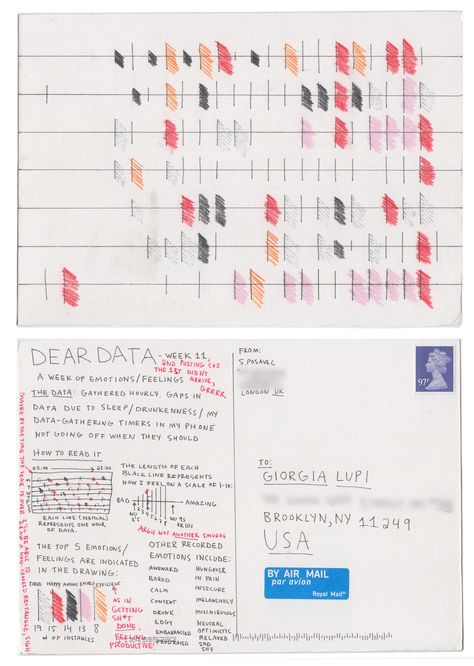 DEAR DATA - WEEK 11,
2ND POSTING COS
THE 1ST DIDN'T
ARRIVE,
GRRRR
A WEEK OF EMOTIONS/FEELINGS
THE DATA: GATHERED HOURLY. GAPS IN
DATA DUE TO SLEEP/DRUNKENNESS/MY
DATA-GATHERING TIMERS IN MY PHONE
NOT GOING OFF WHEN THEY SHOULD
HOW TO READ IT
00:00 23:00
EACH LINE (VERTICAL)
REPRESENTS ONE HOUR
OF DATA.
THE LENGTH OF EACH
BLACK LINE REPRESENTS
HOW I FEEL ON A SCALE OF 1-10:
BAD
AMAZING
ARGH NOT ANOTHER SMUDGE
THE TOP 5 EMOTIONS/
FEELINGS ARE INDICATED
IN THE DRAWING:
TIRED HAPPY
19 15 14 13 8
# OF INSTANCES
AS IN
GETTING
SH*T
DONE,
FEELING
PRODUCTIVE!
OTHER RECORDED
EMOTIONS INCLUDE:
AWKWARD
BORED
CALM
CONTENT
DRUNK
EDGY
EMBARRASSED
FRUSTRATED
HUNGOVER
IN PAIN
INSECURE
MELANCHOLY
MISCHIEVOUS
NEUTRAL
OPTIMISTIC
RELAXED
SAD
SHY
FROM:
S. POSAVEC
LONDON UK
97P
TO:
GIORGIA LUPI
BROOKLYN, NY 11249
USA
BY AIR MAIL
par avion
Royal Mail